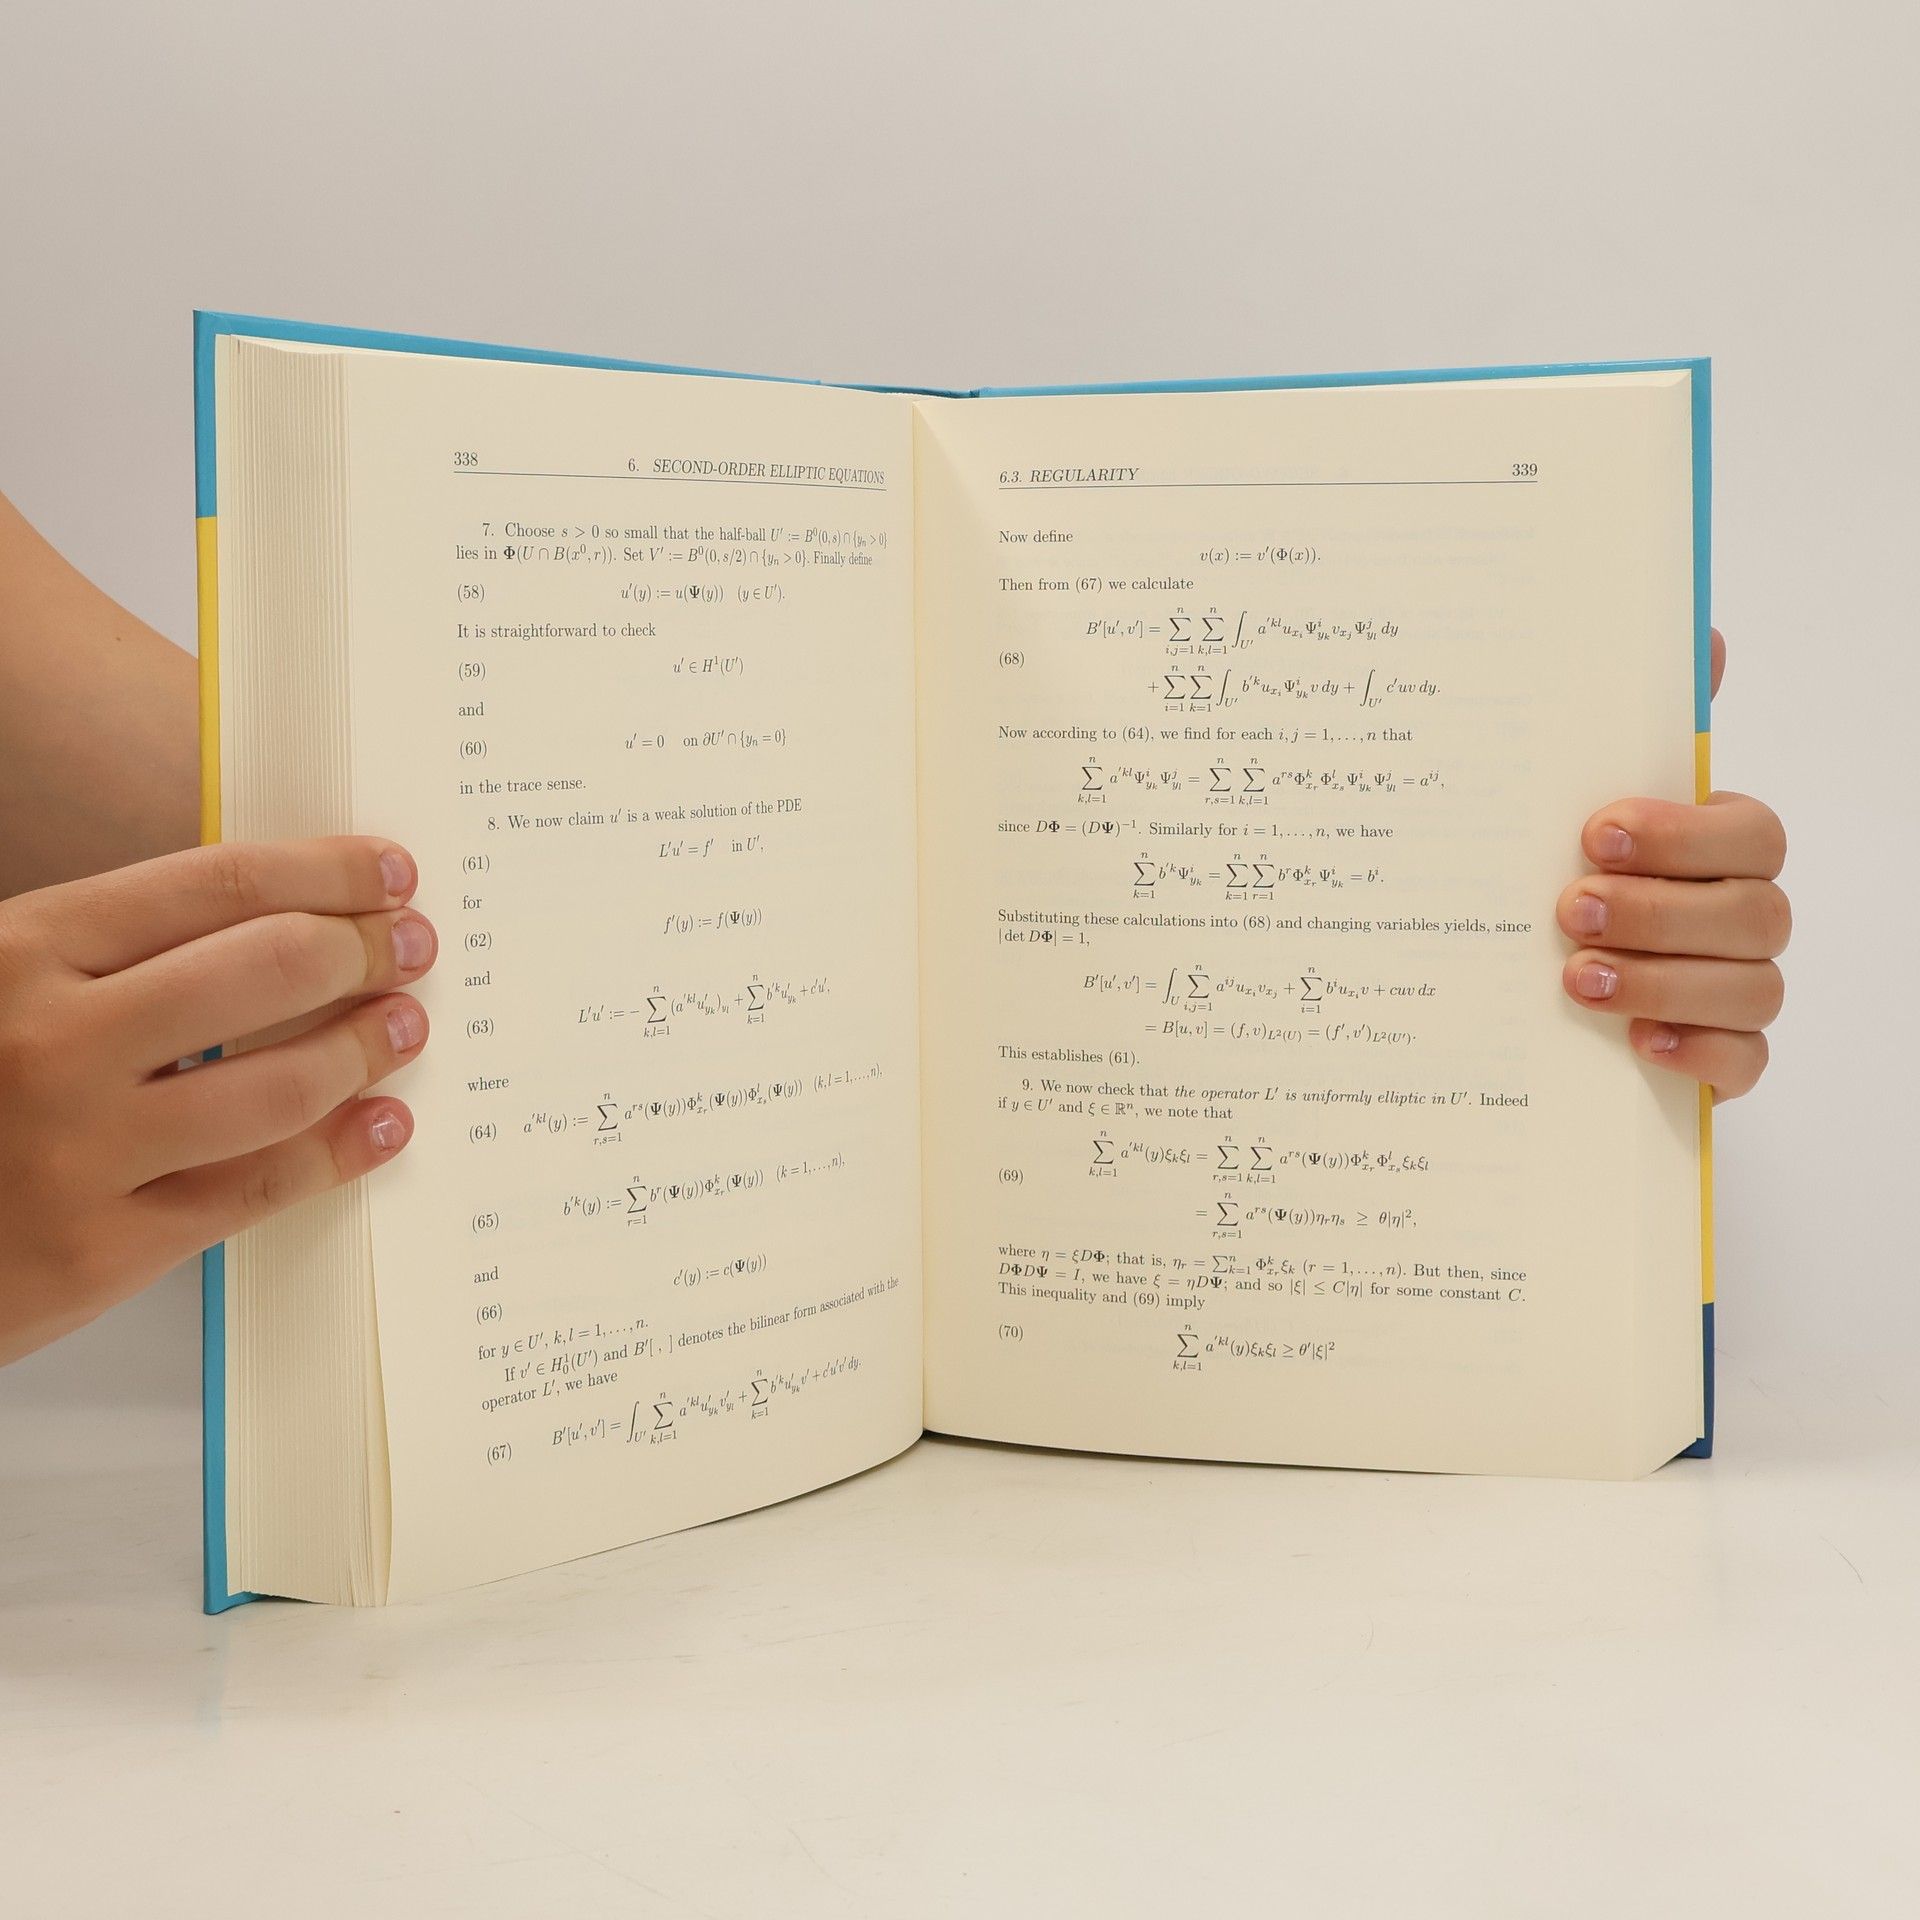 338 6. SECOND-ORDER ELLIPTIC EQUATIONS
7. Choose s > 0 so small that the half-ball U′ := B⁰(0, s) ∩ {yₙ > 0}
lies in Φ(U ∩ B(x⁰, r)). Set V′ := B⁰(0, s/2) ∩ {yₙ > 0}. Finally define
(58) u′(y) := u(Ψ(y)) (y ∈ U′).
It is straightforward to check
(59) u′ ∈ H¹(U′)
and
(60) u′ = 0 on ∂U′ ∩ {yₙ = 0}
in the trace sense.
8. We now claim u′ is a weak solution of the PDE
(61) L′u′ = f′ in U′,
for
(62) f′(y) := f(Ψ(y))
and
(63) L′u′ := − ∑_{k,l=1}^{n} (a′^{kl} u′_{y_k})_{y_l} + ∑_{k=1}^{n} b′^{k} u′_{y_k} + c′u′,
where
(64) a′^{kl}(y) := ∑_{r,s=1}^{n} a^{rs}(Ψ(y))Φ^{k}_{x_r}(Ψ(y))Φ^{l}_{x_s}(Ψ(y)) (k, l = 1, . . . , n),
(65) b′^{k}(y) := ∑_{r=1}^{n} b^{r}(Ψ(y))Φ^{k}_{x_r}(Ψ(y)) (k = 1, . . . , n),
and
(66) c′(y) := c(Ψ(y))
for y ∈ U′, k, l = 1, . . . , n.
If v′ ∈ H¹₀(U′) and B′[ , ] denotes the bilinear form associated with the
operator L′, we have
(67) B′[u′, v′] = ∫_{U′} ∑_{k,l=1}^{n} a′^{kl} u′_{y_k} v′_{y_l} + ∑_{k=1}^{n} b′^{k} u′_{y_k} v′ + c′u′v′ dy.
6.3. REGULARITY 339
Now define
v(x) := v′(Φ(x)).
Then from (67) we calculate
B′[u′, v′] = ∑_{i,j=1}^{n} ∑_{k,l=1}^{n} ∫_{U′} a′^{kl} u_{x_i} Ψ^{i}_{y_k} v_{x_j} Ψ^{j}_{y_l} dy
(68)
+ ∑_{i=1}^{n} ∑_{k=1}^{n} ∫_{U′} b′^{k} u_{x_i} Ψ^{i}_{y_k} v dy + ∫_{U′} c′uv dy.
Now according to (64), we find for each i, j = 1, . . . , n that
∑_{k,l=1}^{n} a′^{kl} Ψ^{i}_{y_k} Ψ^{j}_{y_l} = ∑_{r,s=1}^{n} ∑_{k,l=1}^{n} a^{rs} Φ^{k}_{x_r} Φ^{l}_{x_s} Ψ^{i}_{y_k} Ψ^{j}_{y_l} = a^{ij},
since DΦ = (DΨ)⁻¹. Similarly for i = 1, . . . , n, we have
∑_{k=1}^{n} b′^{k} Ψ^{i}_{y_k} = ∑_{k=1}^{n} ∑_{r=1}^{n} b^{r} Φ^{k}_{x_r} Ψ^{i}_{y_k} = b^{i}.
Substituting these calculations into (68) and changing variables yields, since
| det DΦ| = 1,
B′[u′, v′] = ∫_{U} ∑_{i,j=1}^{n} a^{ij} u_{x_i} v_{x_j} + ∑_{i=1}^{n} b^{i} u_{x_i} v + cuv dx
= B[u, v] = (f, v)_{L²(U)} = (f′, v′)_{L²(U′)}.
This establishes (61).
9. We now check that the operator L′ is uniformly elliptic in U′. Indeed
if y ∈ U′ and ξ ∈ ℝⁿ, we note that
∑_{k,l=1}^{n} a′^{kl}(y)ξ_kξ_l = ∑_{r,s=1}^{n} ∑_{k,l=1}^{n} a^{rs}(Ψ(y))Φ^{k}_{x_r} Φ^{l}_{x_s} ξ_kξ_l
(69)
= ∑_{r,s=1}^{n} a^{rs}(Ψ(y))η_rη_s ≥ θ|η|²,
where η = ξDΦ; that is, η_r = ∑_{k=1}^{n} Φ^{k}_{x_r} ξ_k (r = 1, . . . , n). But then, since
DΦDΨ = I, we have ξ = ηDΨ; and so |ξ| ≤ C|η| for some constant C.
This inequality and (69) imply
(70) ∑_{k,l=1}^{n} a′^{kl}(y)ξ_kξ_l ≥ θ′|ξ|²